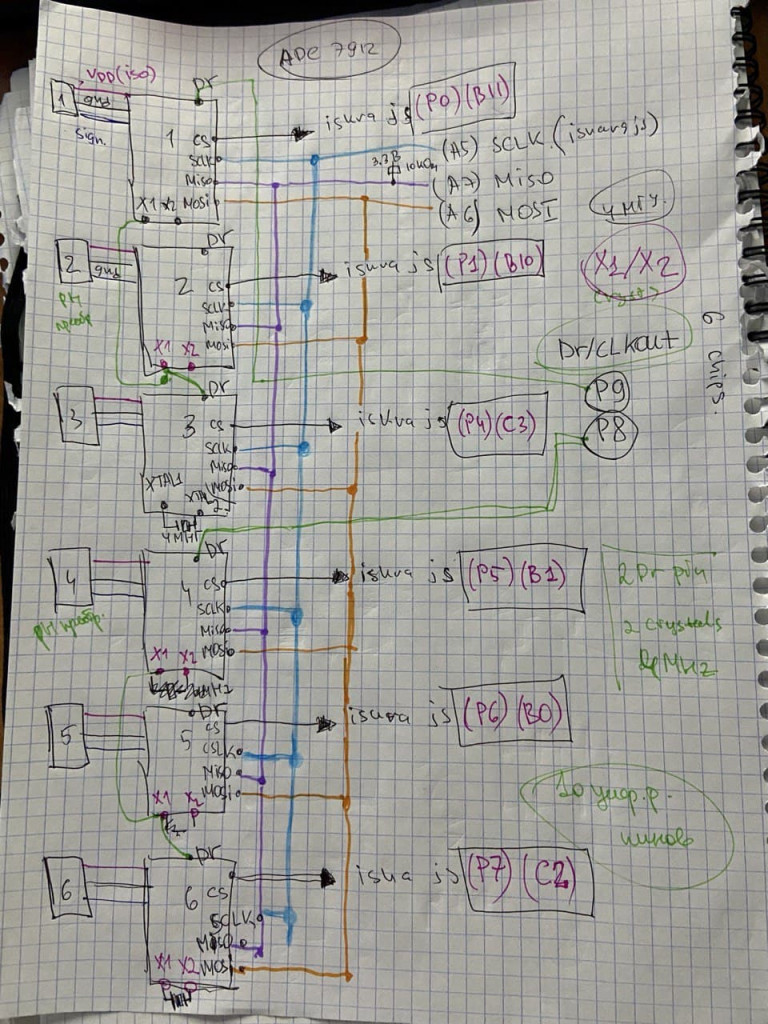 ADE 7912
VDD(iso)
Dr
1
gnd
Sign.
1
CS
SCLK
Miso
MOSi
X1 X2
iskra js (P0)(B11)
(A5) SCLK.(iskra js)
3.3 В
10 кОм
(A7) MISO
(A6) MOSI
4 МГц.
2
gnd
Dr
2
CS
SCLK
Miso
Mosi
X1 X2
iskra js (P1)(B10)
X1/X2
(cryst)
pH
преобр
Dr/CLKOUT
6 chips.
P9
P8
3
Dr
3
CS
SCLK
Miso
Mosi
XTAL1
XTAL2
4 МНz
iskra js (P4)(C3)
4
Dr
4
CS
SCLK
Miso
Mosi
X1 X2
iskra js (P5)(B1)
pH преобр.
2 Dr pin
2 crystals
4MHz
5
Dr
5
CS
SCLK
Miso
Mosi
X1 X2
iskra js (P6)(B0)
10 цифр.р.
пинов
6
Dr
6
CS
SCLK
Miso
Mosi
X1 X2
iska js (P7)(C2)